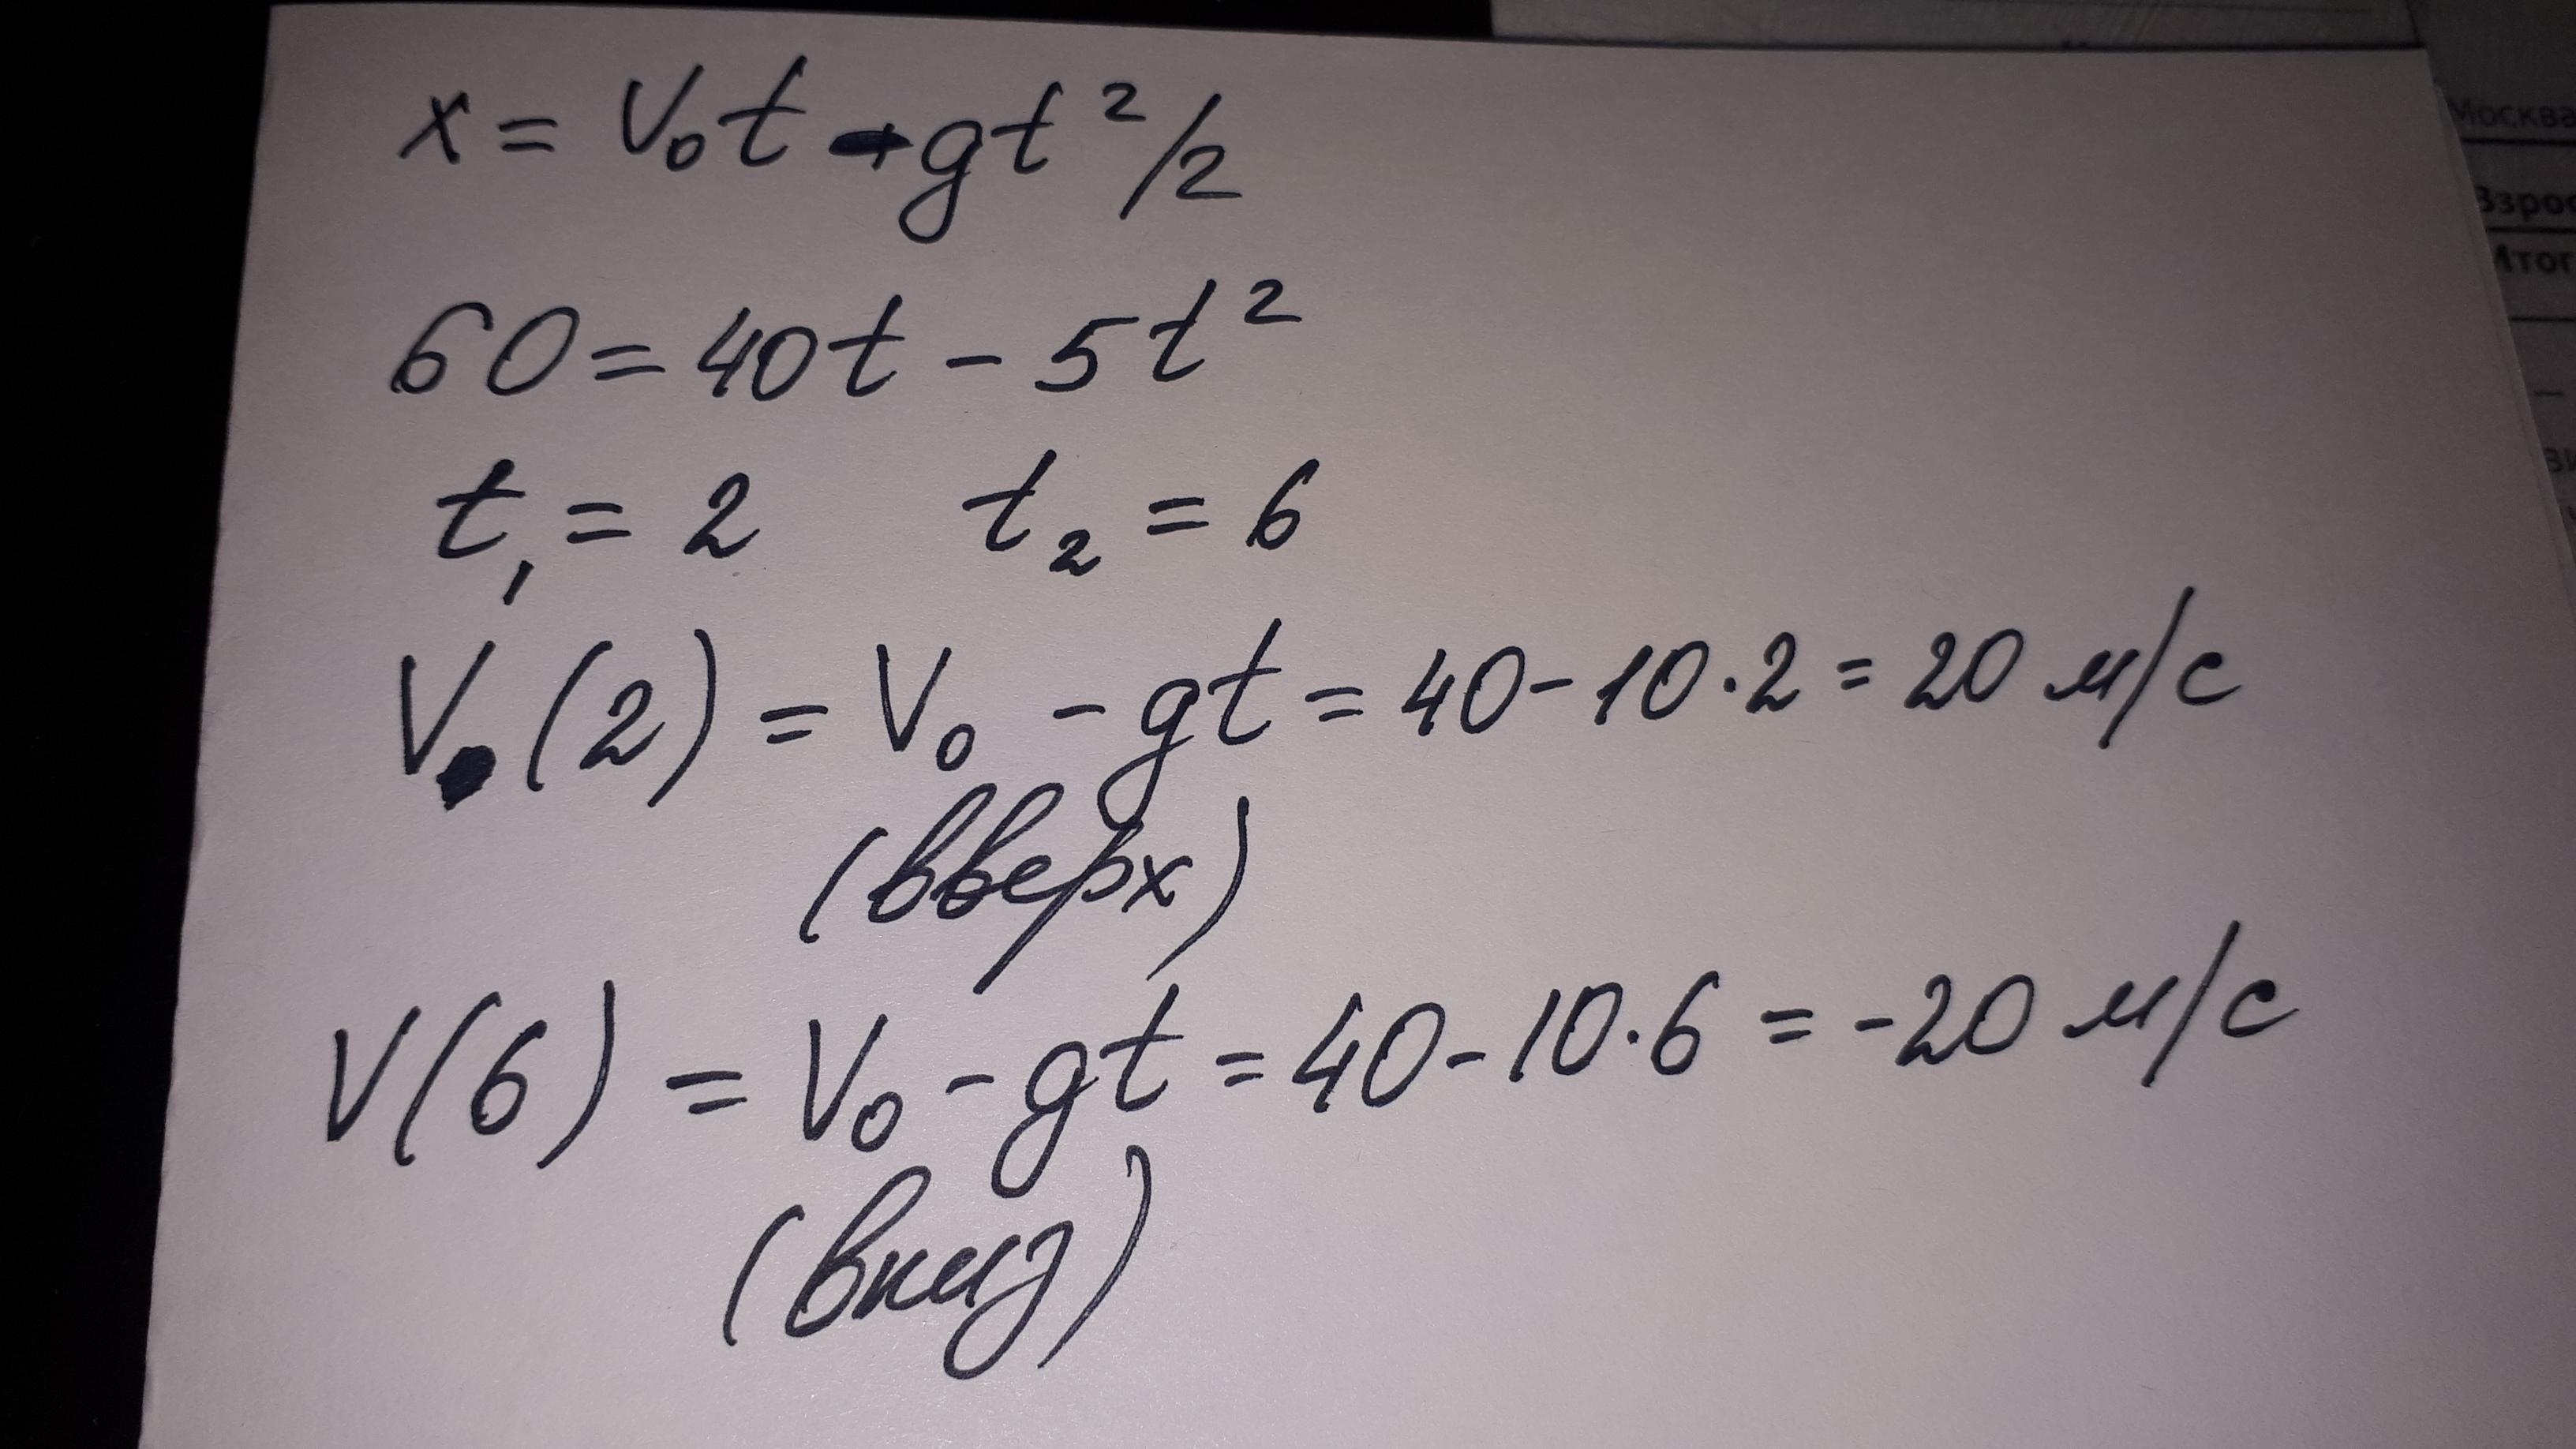 x = V₀t - gt²/2
60 = 40t - 5t²
t₁ = 2 t₂ = 6
V (2) = V₀ - gt = 40 - 10·2 = 20 м/с
(вверх)
V(6) = V₀ - gt = 40 - 10·6 = -20 м/с
(вниз)
Москва
Взрос
Итог